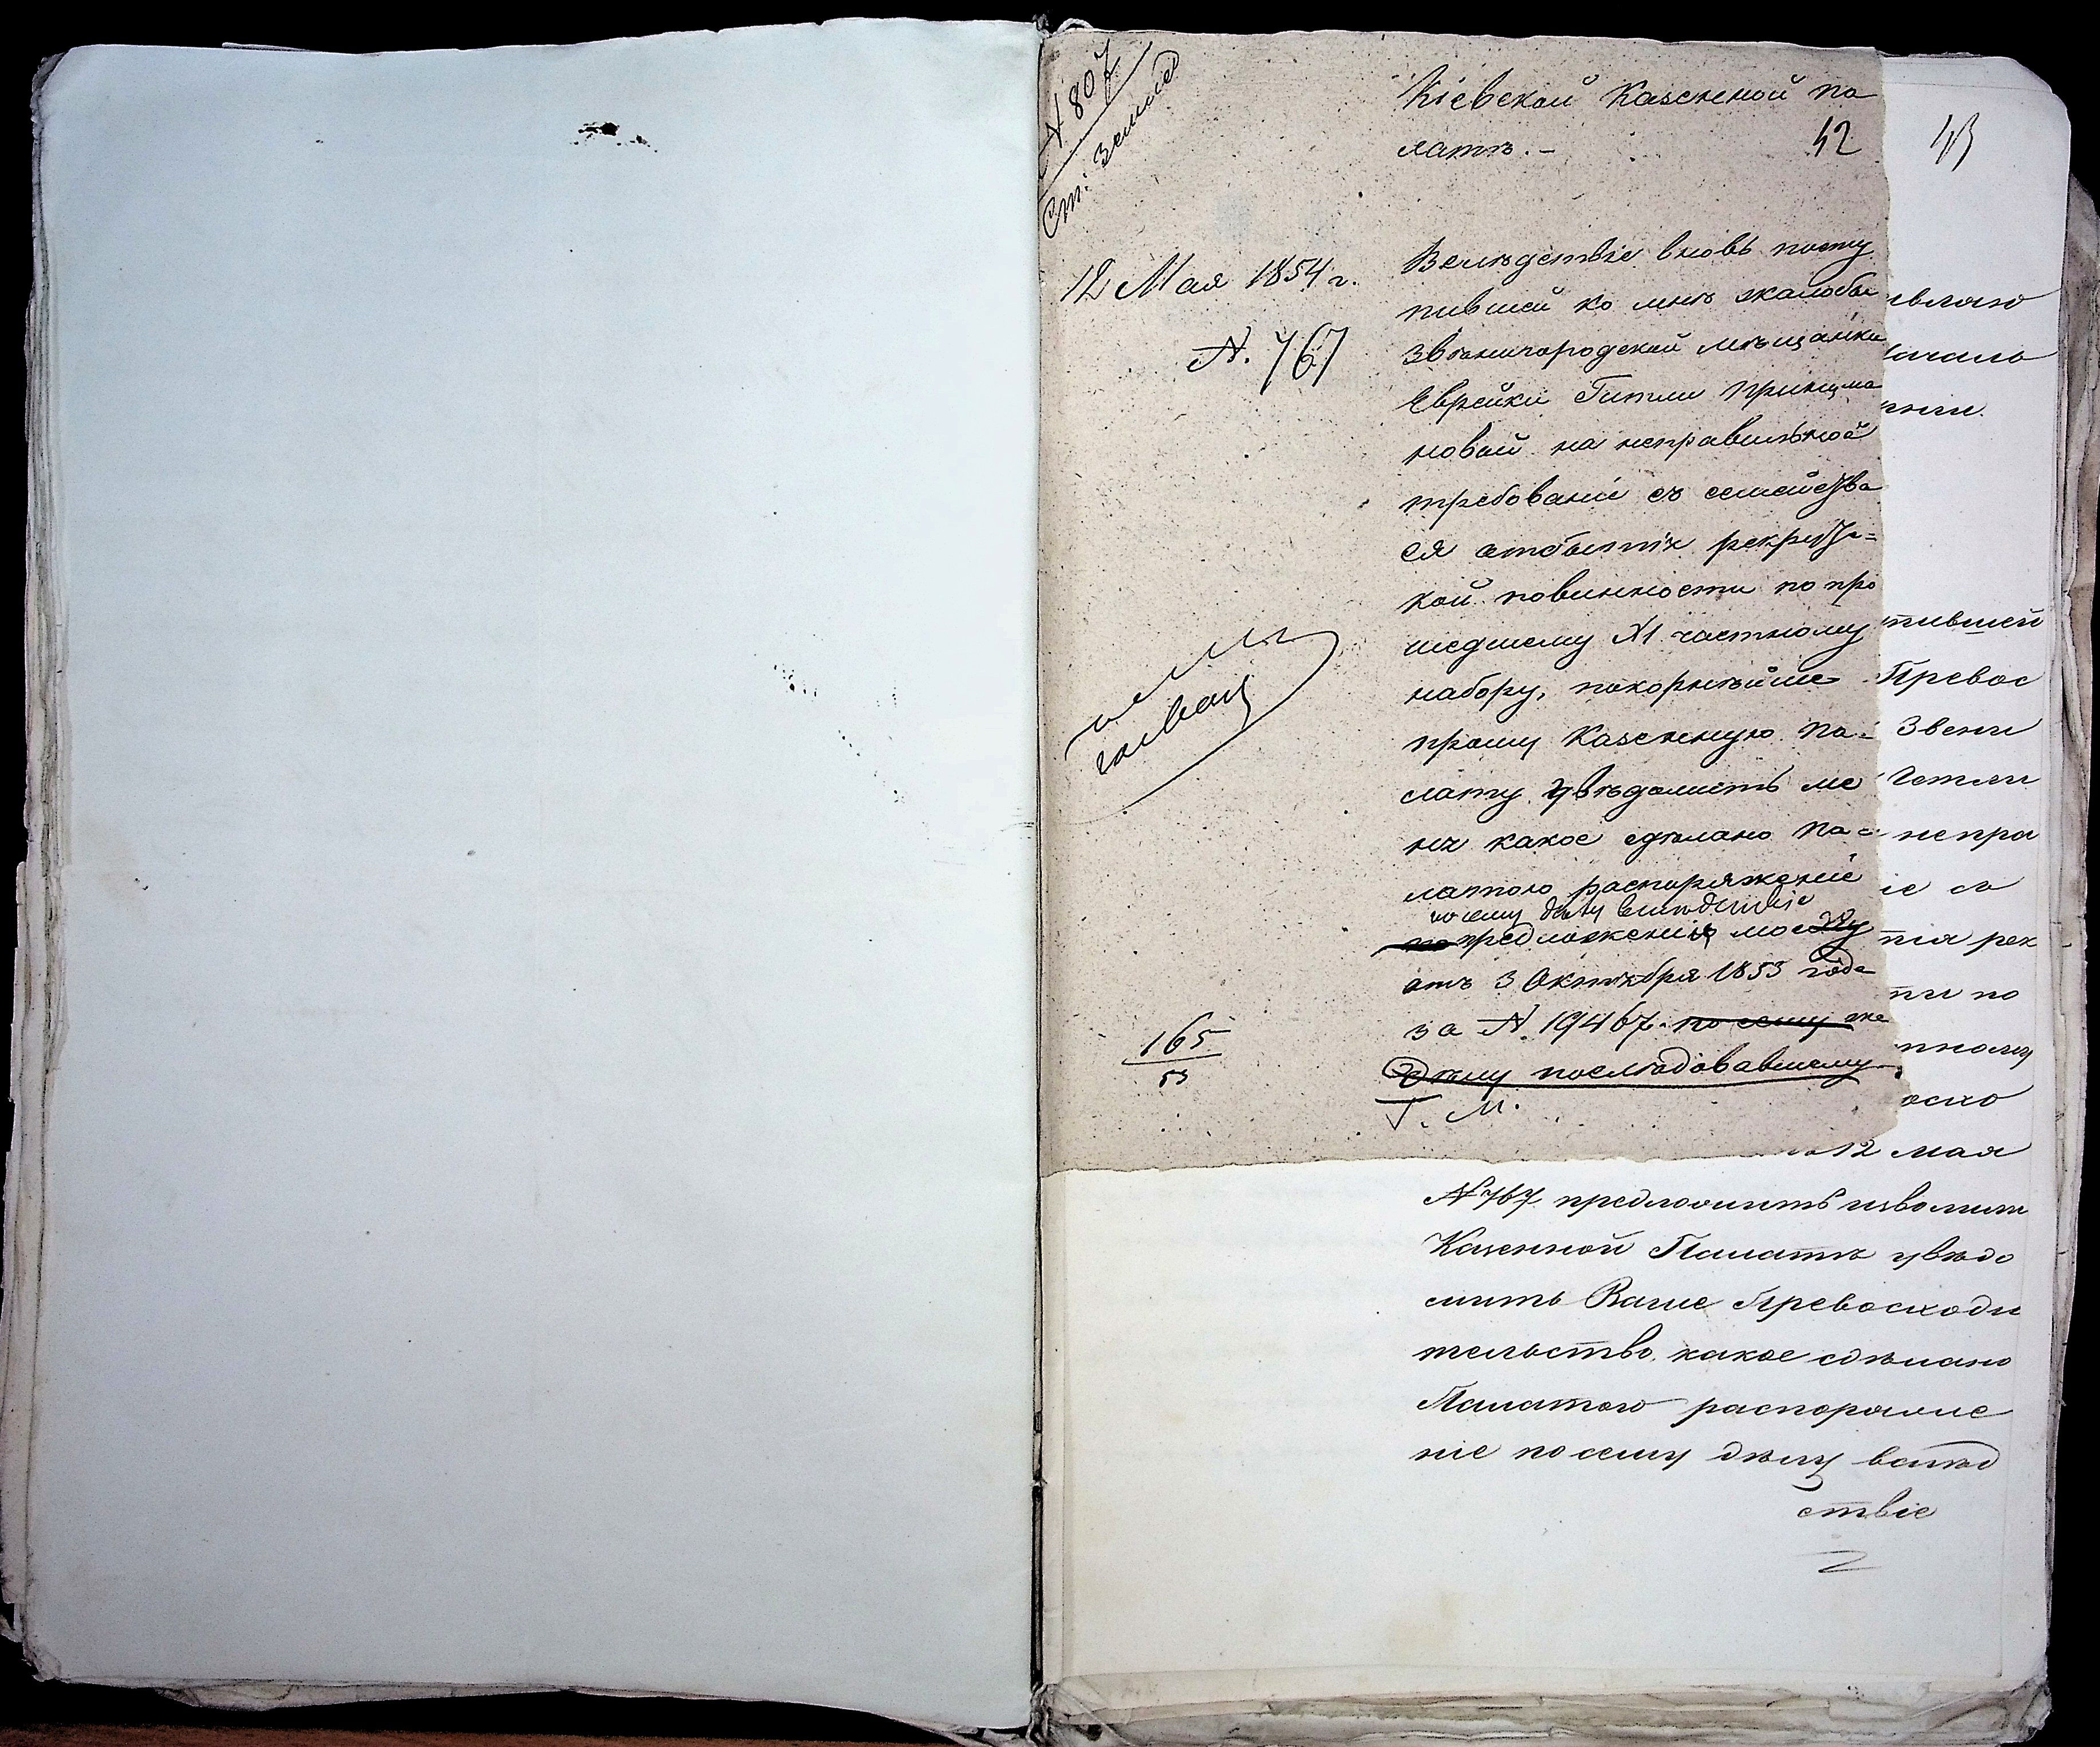 N 807
Ст. Земля
Кіевской Казенной па
латѣ. -
42
43
12 Мая 1854 г.
N. 767
Вслѣдствіе вновь посту
пившей ко мнѣ жалобы
Звѣнигородской мѣщанки
Еврейки Гитли Принцма
новой на неправильное
требованіе съ семейства
ея отбытія рекрутс=
кой повинности по про
шедшему XI частному
набору, покорнѣйше
прошу Казенную Па=
лату увѣдомить ме
ня какое сдѣлано Па=
латою распоряженіе
по сему дѣлу вслѣдствіе
по предложенія моему
отъ 3 Октября 1853 года
за N. 19467. по сему же
дѣлу послѣдовавшему.
Г. М.
165
53
тившей
Превос
Звени
Гетли
непра
іе съ
тія рек
ти по
тному
осхо
12 мая
N 767 предложить изволили
Казенной Палатѣ увѣдо
мить Ваше Превосходи
тельство, какое сдѣлано
Палатою распоряже
ніе по сему дѣлу вслѣд
ствіе